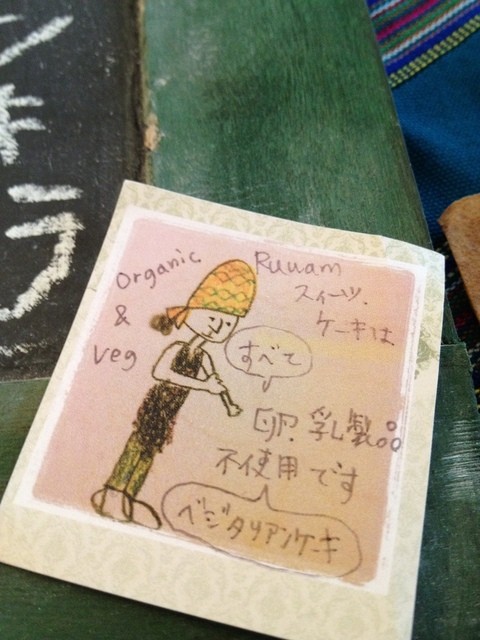 Organic
&
veg
Ruuam
スィーツ、
ケーキは
すべて
卵、乳製品
不使用です
ベジタリアンケーキ